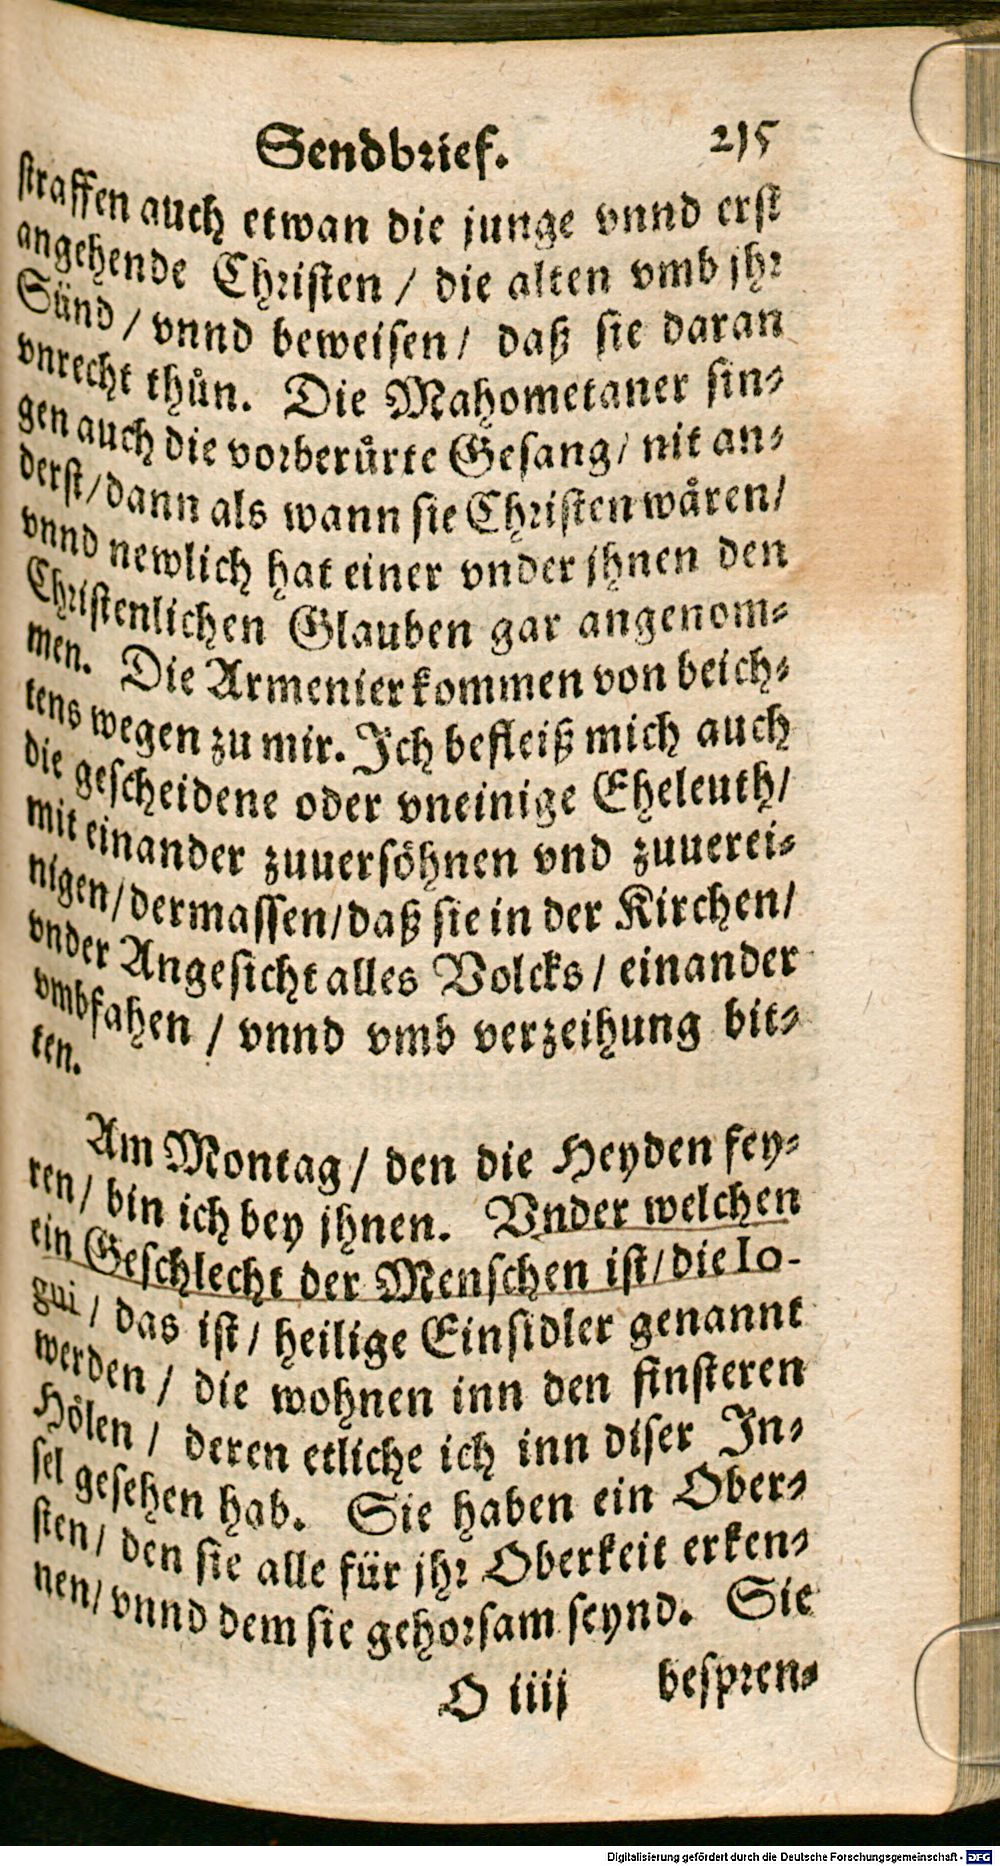 Sendbrief. 215
straffen auch etwan die junge vnnd erst
angehende Christen / die alten vmb jhr
Sünd / vnnd beweisen / daß sie daran
vnrecht thůn. Die Mahometaner sin-
gen auch die vorberůrte Gesang / nit an-
derst / dann als wann sie Christen wåren /
vnnd newlich hat einer vnder jhnen den
Christenlichen Glauben gar angenom-
men. Die Armenier kommen von beich-
tens wegen zu mir. Ich befleiß mich auch
die gescheidene oder vneinige Eheleuth /
mit einander zuuersöhnen vnd zuuerei-
nigen / dermassen / daß sie in der Kirchen /
vnder Angesicht alles Volcks / einander
vmbfahen / vnnd vmb verzeihung bit-
ten.
Am Montag / den die Heyden fey-
ren / bin ich bey jhnen. Vnder welchen
ein Geschlecht der Menschen ist / die Io-
gui / das ist / heilige Einsidler genannt
werden / die wohnen inn den finsteren
Hölen / deren etliche ich inn diser In-
sel gesehen hab. Sie haben ein Ober-
sten / den sie alle für jhr Oberkeit erken-
nen / vnnd dem sie gehorsam seynd. Sie
O iiij bespren-
Digitalisierung gefördert durch die Deutsche Forschungsgemeinschaft - DFG